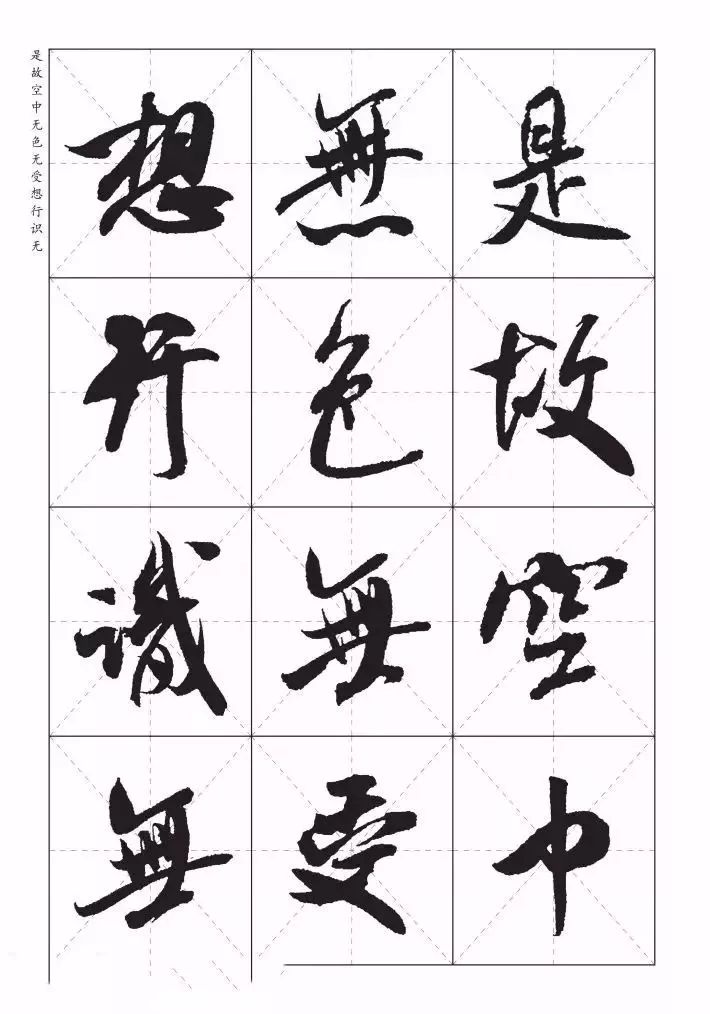 是故空中无色无受想行识无
是故空中
無色無受
想行識無